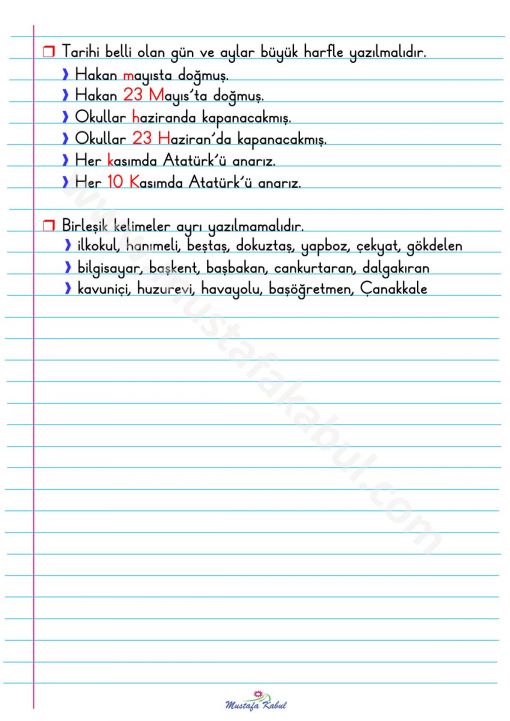 Tarihi belli olan gün ve aylar büyük harfle yazılmalıdır.
Hakan mayısta doğmuş.
Hakan 23 Mayıs'ta doğmuş.
Okullar haziranda kapanacakmış.
Okullar 23 Haziran'da kapanacakmış.
Her kasımda Atatürk'ü anarız.
Her 10 Kasımda Atatürk'ü anarız.
Birleşik kelimeler ayrı yazılmamalıdır.
ilkokul, hanımeli, beştaş, dokuztaş, yapboz, çekyat, gökdelen
bilgisayar, başkent, başbakan, cankurtaran, dalgakıran
kavuniçi, huzurevi, havayolu, başöğretmen, Çanakkale
www.mustafakabul.com
Mustafa Kabul